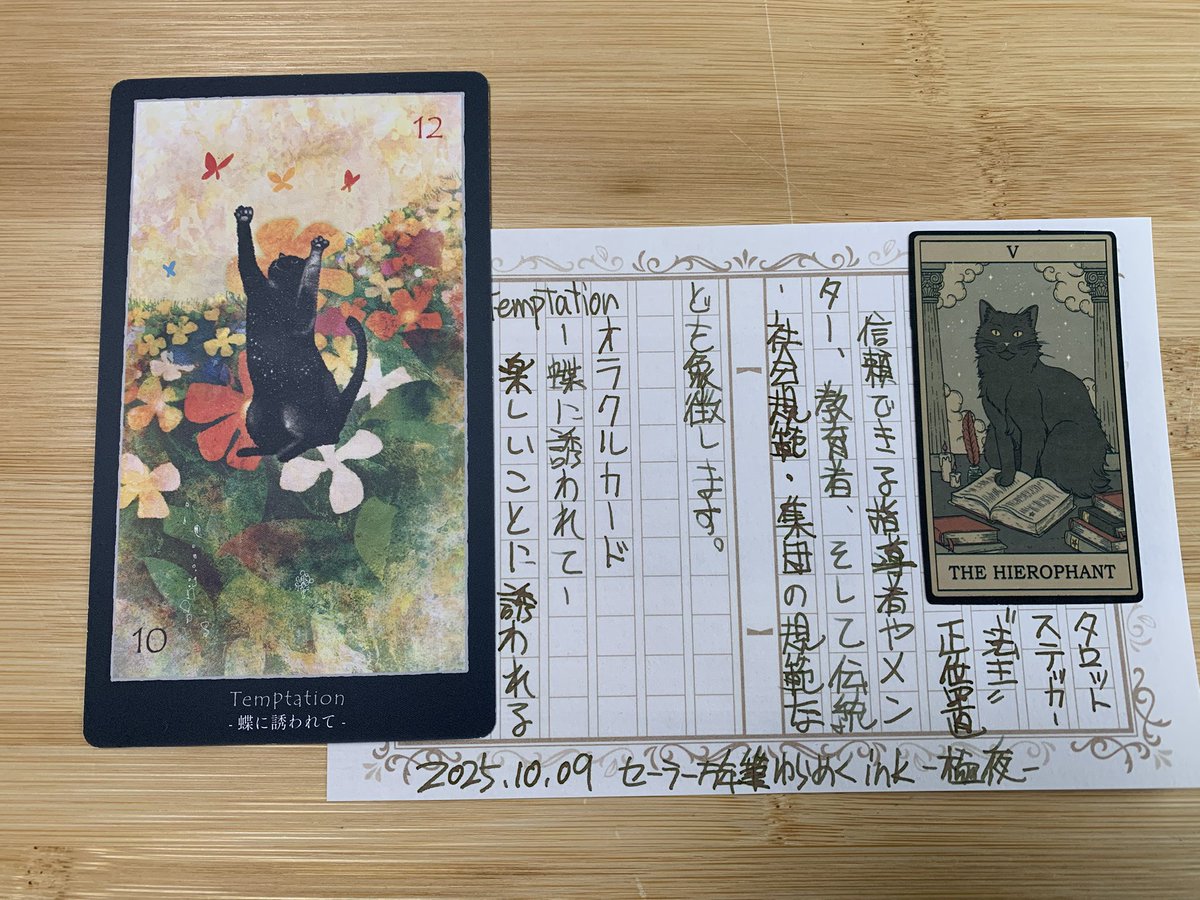 12
10
Temptation
- 蝶に誘われて -
V
THE HIEROPHANT
タロット
ステッカー
"法王"
正位置
信頼できる指導者やメン
ター、教育者、そして伝統
・社会規範・集団の規範な
どを象徴します。
オラクルカード
Temptation
-蝶に誘われて-
楽しいことに誘われる
2025.10.09 セーラー万年筆ゆらめくink -極夜-